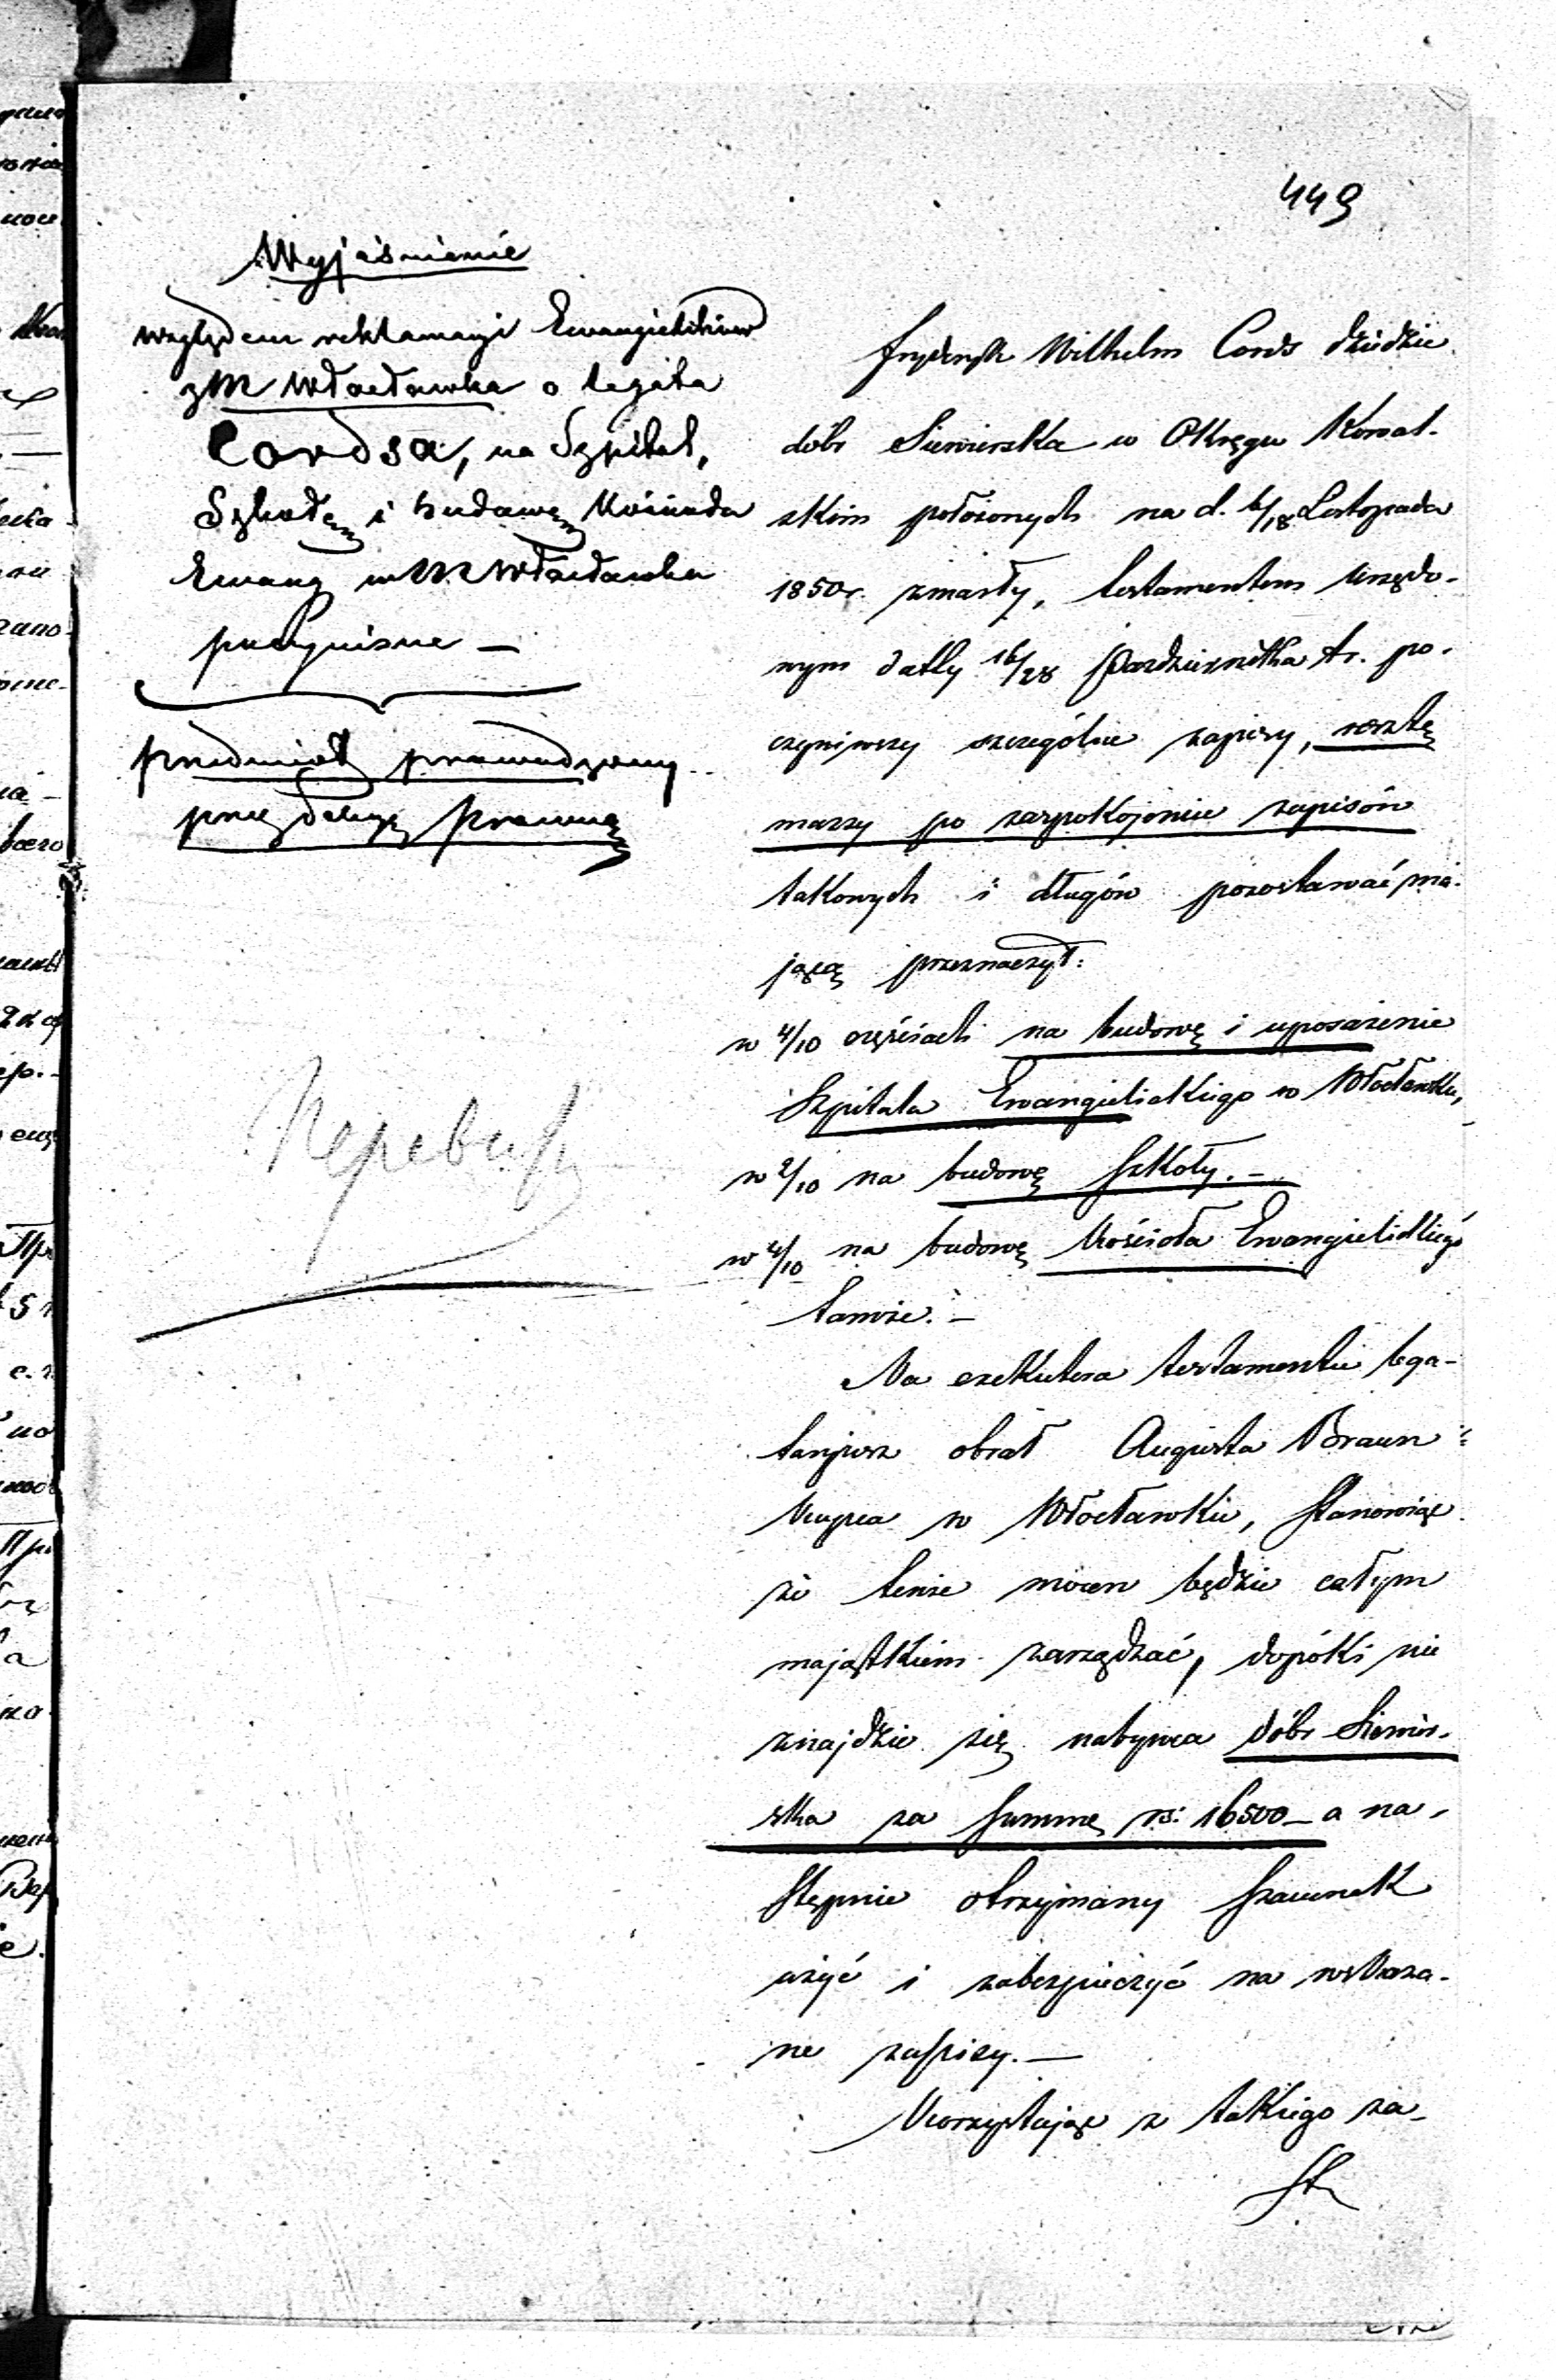 449
Wyjaśnienie
względem reklamacyi Ewangielików
z M Włocławka o legata
Cordsa, na Szpital,
Szkołę i budowę Kościoła
Ewang w M Włocławku
poczynione —
przedmiot prowadzony
przez Delegę prawną
Fryderyk Wilhelm Cords dziedzic
dóbr Siewierska w Okręgu Kowal-
skim położonych na d. 6/18 Listopada
1850 r. zmarły, testamentem urzędo-
wym datty 16/28 Października t.r. po-
czyniwszy szczególne zapisy, resztę
massy po zaspokojeniu zapisów
takowych i długów pozostawać ma-
jącą przeznaczył:
w 4/10 częściach na budowę i uposażenie
Szpitala Ewangielickiego w Włocławku,
w 2/10 na budowę Szkoły. —
w 4/10 na budowę Kościoła Ewangielickiego
tamże. —
Na exekutora testamentu tega-
obrał Augusta Braun
Kupca w Włocławku, Stanowiąc
że tenże mocen będzie całym
majątkiem zarządzać, dopóki nie
znajdzie się nabywca dóbr Siewier-
ska za Summę rs: 16500 — a na-
stępnie otrzymany Szacunek
użyć i zabezpieczyć na wskaza-
ne zapisy. —
Korzystając z takiego za-